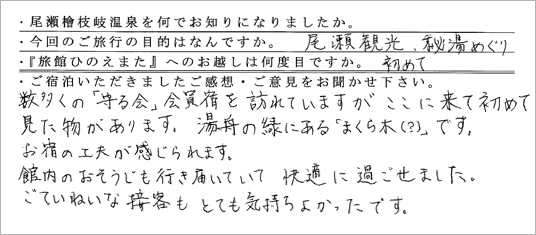 ・尾瀬檜枝岐温泉を何でお知りになりましたか。
・今回のご旅行の目的はなんですか。 尾瀬観光、秘湯めぐり
・『旅館ひのえまた』へのお越しは何度目ですか。 初めて
・ご宿泊いただきましたご感想・ご意見をお聞かせ下さい。
数多くの「守る会」会員宿を訪れていますが ここに来て初めて
見た物があります。 湯舟の縁にある「まくら木(?)」です。
お宿の工夫が感じられます。
館内のおそうじも行き届いていて 快適に過ごせました。
ごていねいな接客も とても気持ちよかったです。